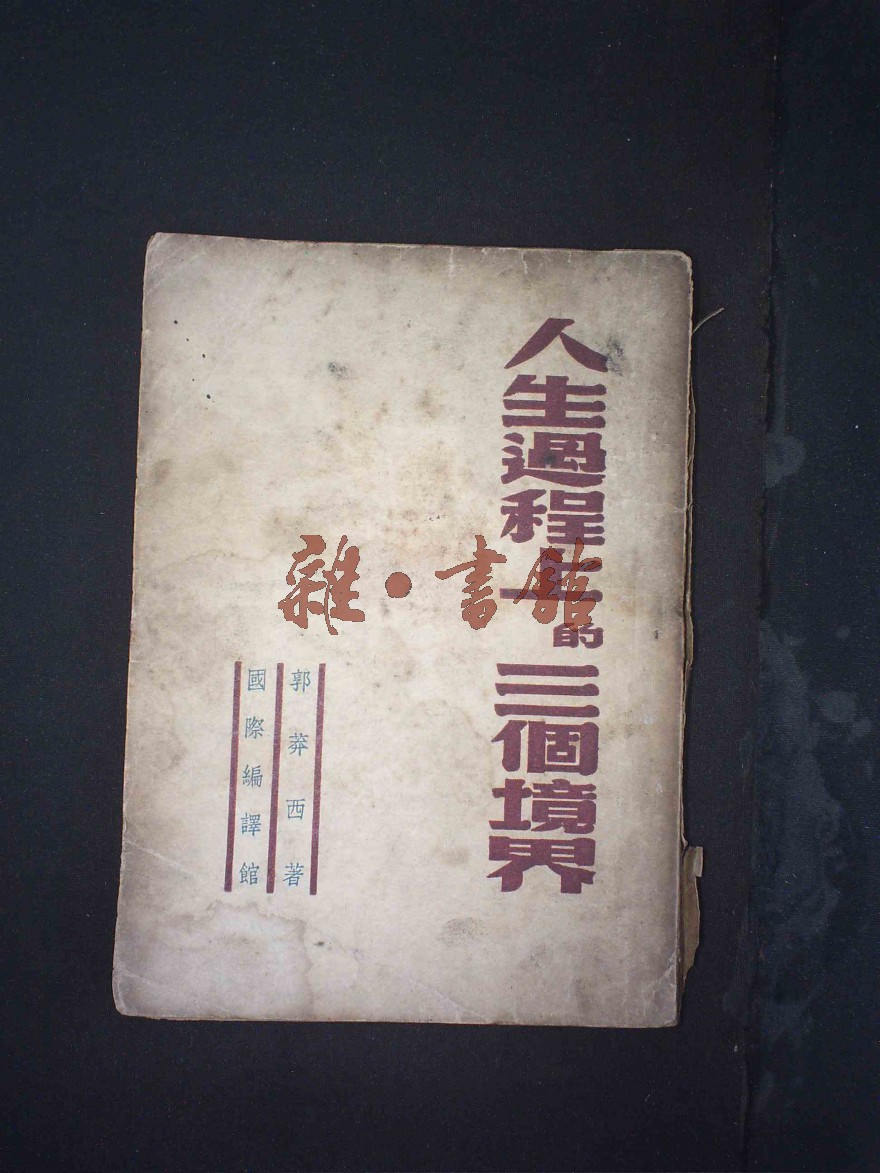 人生過程上的三個境界
雜·書館
郭莽西著
國際編譯館